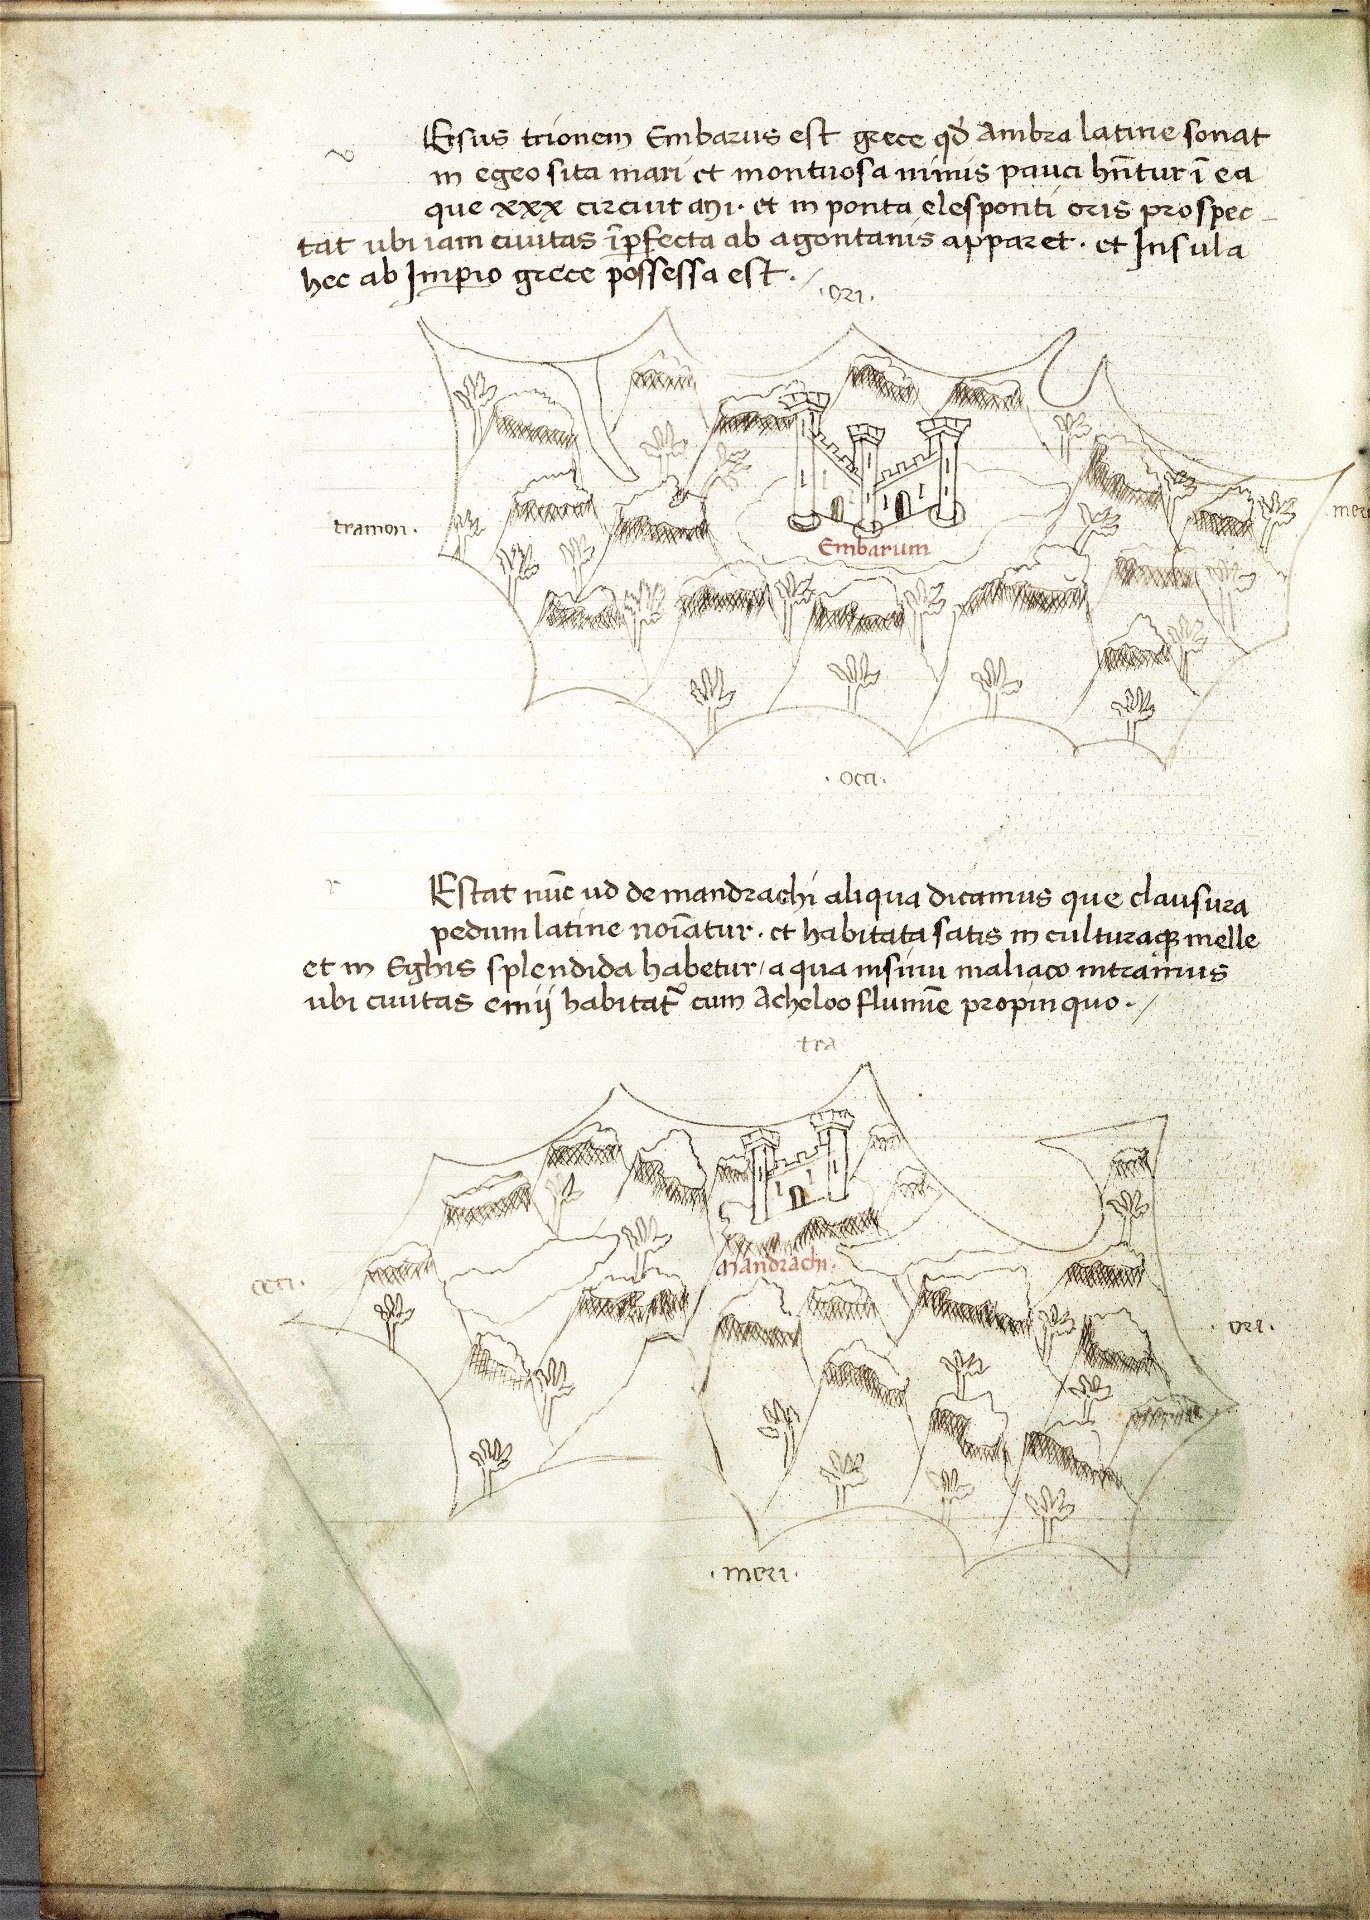 v
Ersus trionem Embarus est grece qđ Ambra latine sonat
in egeo sita mari et montuosa nimis pauci hn̄tur ī ea
que xxx circuit
et in ponta elesponti oris prospec-
tat ubi iam civitas īperfecta ab agontanis apparet. et Insula
hec ab Imperio grece possessa est.
.ori.
tramon.
meri
Embarum
.occi.
r
Estat nūc ud de mandrachi aliqua dicamus que clausura
pedum latine noīatur. et habitata satis in culturaque melle
et in Eghis splendida habetur / a qua in sinu maliaco intramus
ubi civitas emij habitat᷒ cum Acheloo flumīe propinquo.
tra
occi.
Mandrachi.
.ori.
.meri.